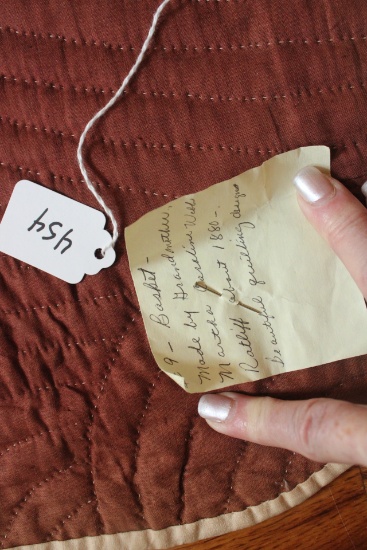 454
9 - Basket -
Made by Grandmother,
Martha Caroline Webb
Ratliff about 1880 -.
beautiful quilting design